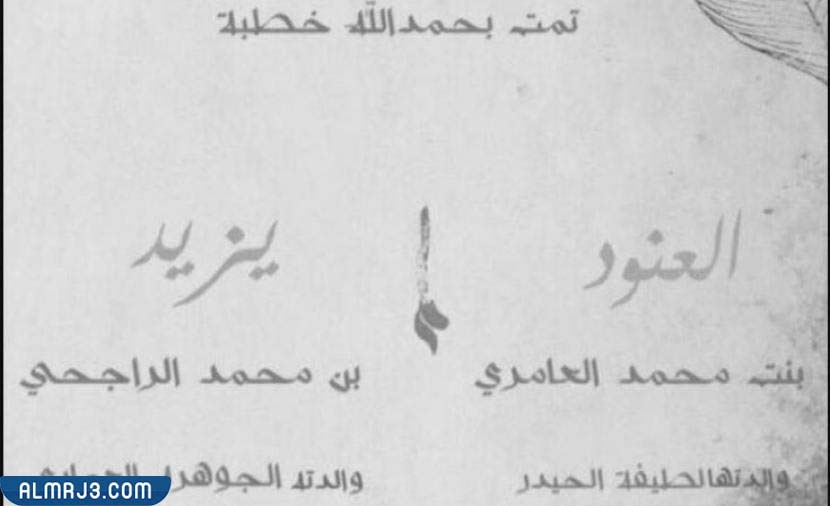 تمت بحمدالله خطبة
العنود
يزيد
بنت محمد العامري
بن محمد الراجحي
والدتها لطيفة الحيدر
والدته الجوهره
ALMRJ3.COM